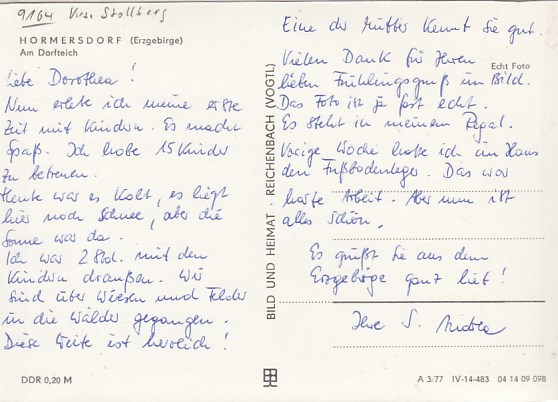 9164 Kreis Stollberg
HORMERSDORF (Erzgebirge)
Am Dorfteich
Liebe Dorothea!
Nun erlebe ich meine erste
Zeit mit Kindern. Es macht
Spaß. Ich habe 15 Kinder
zu betreuen.
Heute war es kalt, es liegt
hier noch Schnee, aber die
Sonne war da.
Ich war 2 Std. mit den
Kindern draußen. Wir
sind über Wiesen und Felder
in die Wälder gegangen.
Diese Weite ist herrlich!
DDR 0,20 M
BILD UND HEIMAT · REICHENBACH (VOGTL)
Eine der Mütter kennt Sie gut.
Vielen Dank für Ihren
Echt Foto
lieben Frühlingsgruß im Bild.
Das Foto ist ja fast echt.
Es steht in meinem Regal.
Vorige Woche hatte ich im Haus
den Fußbodenleger. Das war
harte Arbeit. Aber nun ist
alles schön.
Es grüßt Sie aus dem
Erzgebirge ganz lieb!
Ihre S.
A 3/77 IV-14-483 04 14 09 098